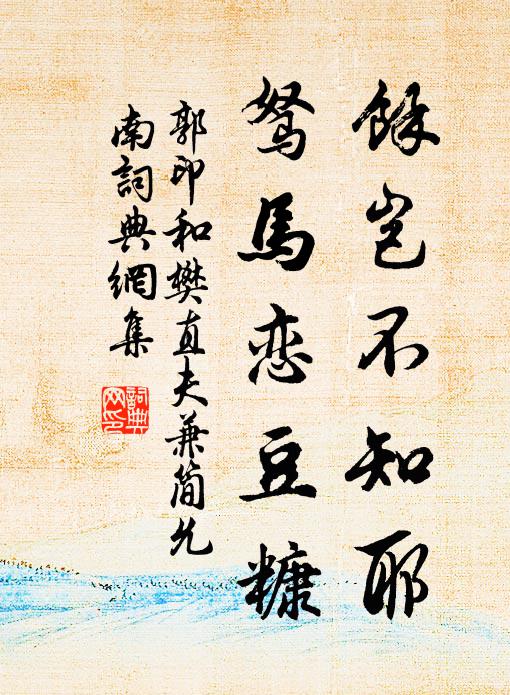 餘岂不知耶
驽馬恋豆糠
郭印和樊直夫兼簡允
南詞典網集
詞典
网印